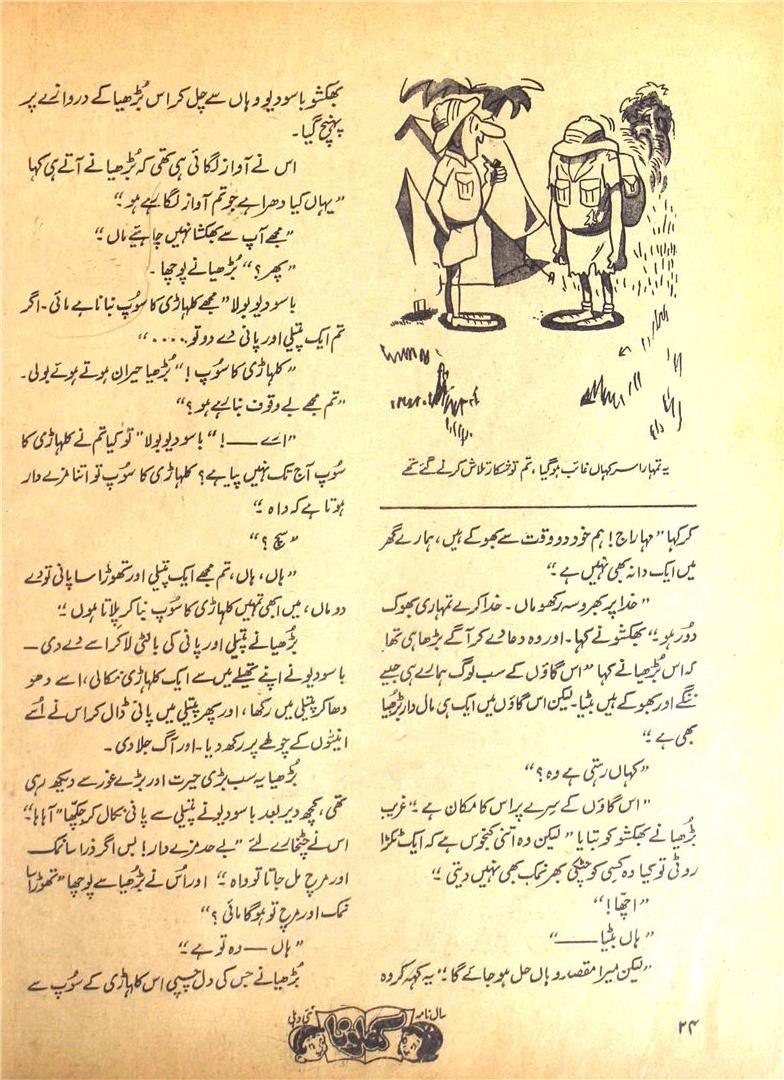 یہ تمہارا سر کہاں غائب ہوگیا، تم تو شکار تلاش کرنے گئے تھے
کر کہا ”مہاراج! ہم خود دو وقت سے بھوکے ہیں، ہمارے گھر
میں ایک دانہ بھی نہیں ہے۔“
”خدا پر بھروسہ رکھو ماں۔ خدا کرے تمہاری بھوک
دُور ہو۔“ بھکشو نے کہا۔ اور وہ دعا دے کر آگے بڑھا ہی تھا
کہ اس بُڑھیا نے کہا ”اس گاؤں کے سب لوگ ہمارے ہی جیسے
ننگے اور بھوکے ہیں بیٹا۔ لیکن اس گاؤں میں ایک ہی مال دار بُڑھیا
بھی ہے۔“
”کہاں رہتی ہے وہ؟“
”اس گاؤں کے سِرے پر اس کا مکان ہے۔“ غریب
بڑُھیا نے بھکشو کو بتایا ”لیکن وہ اتنی کنجوس ہے کہ ایک ٹکڑا
روٹی تو کیا وہ کسی کو چٹکی بھر نمک بھی نہیں دیتی۔“
”اچّھا!“
”ہاں بیٹیا——“
”لیکن میرا مقصد وہاں حل ہو جائے گا۔“ یہ کہہ کر وہ
بھکشو باسودیو وہاں سے چل کر اس بُڑھیا کے دروازے پر
پہنچ گیا۔
اس نے آواز لگائی ہی تھی کہ بُڑھیا نے آتے ہی کہا
”یہاں کیا دھرا ہے جو تم آواز لگا رہے ہو۔“
”مجھے آپ سے بھکشا نہیں چاہیئے ماں۔“
”پھر؟“ بُڑھیا نے پوچھا۔
باسودیو بولا ”مجھے کلہاڑی کا سُوپ بنانا ہے مائی۔ اگر
تم ایک پتیلی اور پانی دے دو تو....“
”کلہاڑی کا سُوپ!“ بُڑھیا حیران ہوتے ہوئے بولی۔
”تم مجھے بے وقوف بنا رہے ہو؟“
”ارے——!“ باسودیو بولا ”تو کیا تم نے کلہاڑی کا
سُوپ آج تک نہیں پیا ہے؟ کلہاڑی کا سُوپ تو اتنا مزے دار
ہوتا ہے کہ واہ۔“
”سچ؟“
”ہاں، ہاں، تم مجھے ایک پتیلی اور تھوڑا سا پانی تو دے
دو ماں، میں ابھی تمہیں کلہاڑی کا سُوپ بنا کر پلاتا ہوں۔“
بُڑھیا نے پتیلی اور پانی کی بالٹی لا کر اسے دے دی—
باسودیو نے اپنے تھیلے میں سے ایک کلہاڑی نکالی، اسے دھو
دھا کر پتیلی میں رکھا، اور پھر پتیلی میں پانی ڈال کر اس نے اُسے
اینٹوں کے چولھے پر رکھ دیا۔ اور آگ جلا دی۔
بُڑھیا یہ سب بڑی حیرت اور بڑے غور سے دیکھ رہی
تھی، کچھ دیر بعد باسودیو نے پتیلی سے پانی نکال کر چکّھا ”آہا ہا“
اس نے چٹخارے لئے ”بے حد مزے دار! بس اگر ذرا سا نمک
اور مرچ مل جاتا تو واہ۔“ اور اُس نے بُڑھیا سے پوچھا ”تھوڑا سا
نمک اور مرچ تو ہوگا مائی؟“
”ہاں——وہ تو ہے۔“
بُڑھیا نے جس کی دل چسپی اس کلہاڑی کے سُوپ سے
سال نامہ
کھلونا
نئی دہلی
۲۴